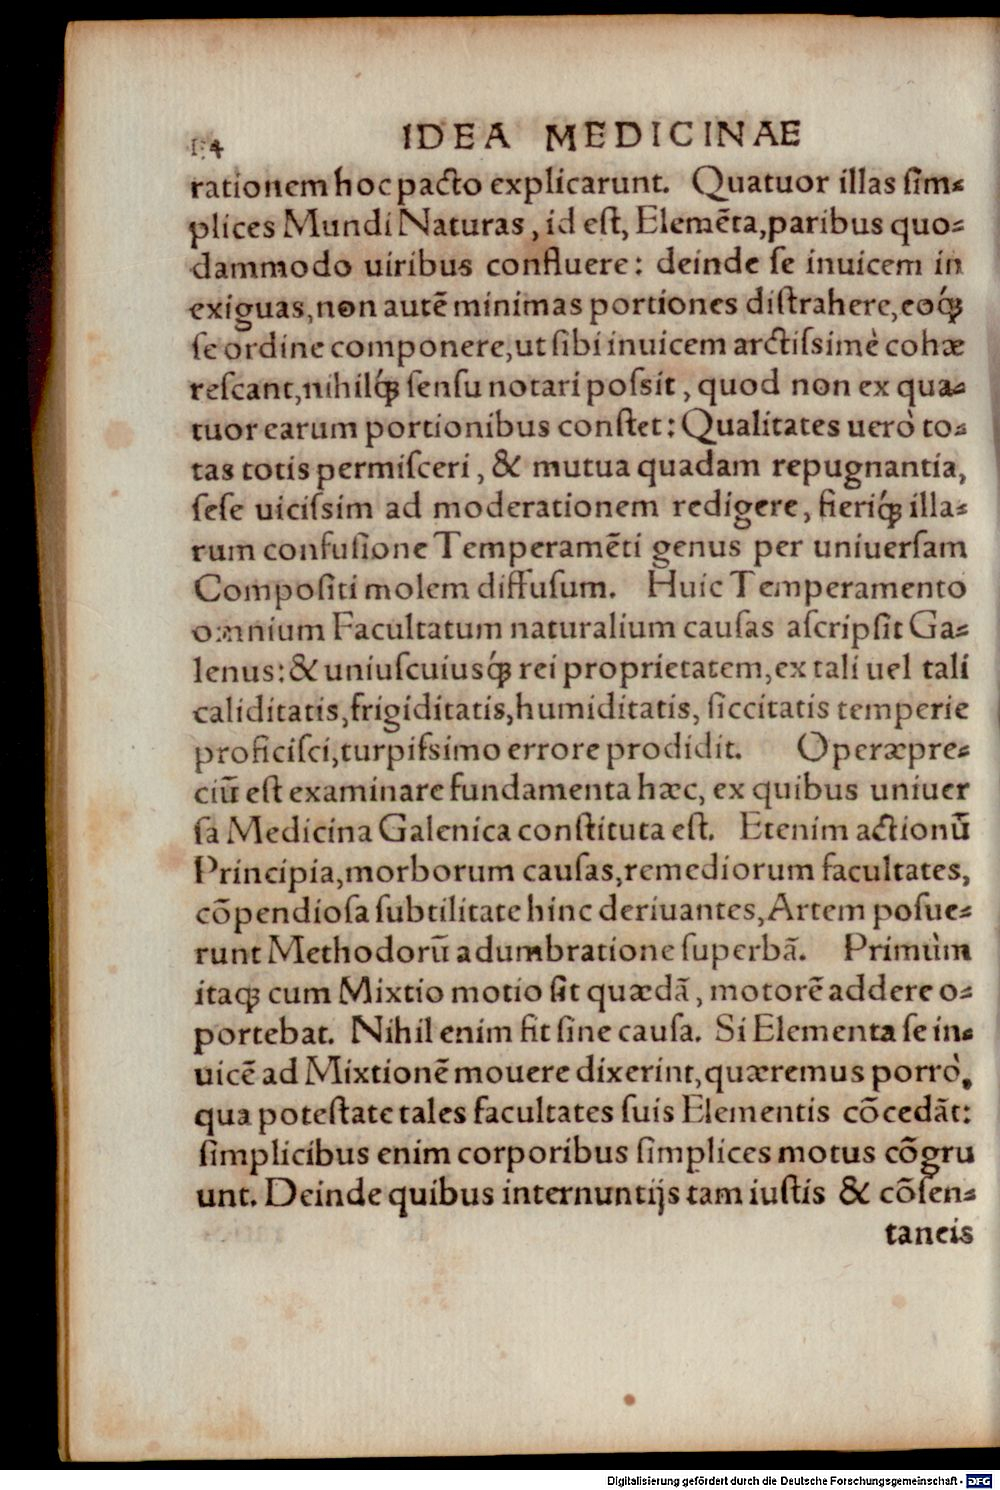 154 IDEA MEDICINAE
rationem hoc pacto explicarunt. Quatuor illas ſim-
plices Mundi Naturas, id eſt, Elemẽta, paribus quo-
dammodo uiribus confluere: deinde ſe inuicem in
exiguas, non autẽ minimas portiones diſtrahere, eoq́ꝫ
ſe ordine componere, ut ſibi inuicem arctiſsimè cohæ
reſcant, nihilq́ꝫ ſenſu notari poſsit, quod non ex qua-
tuor earum portionibus conſtet: Qualitates uerò to-
tas totis permiſceri, & mutua quadam repugnantia,
ſeſe uiciſsim ad moderationem redigere, fieriq́ꝫ illa-
rum confuſione Temperamẽti genus per uniuerſam
Compoſiti molem diffuſum. Huic Temperamento
omnium Facultatum naturalium cauſas aſcripſit Ga-
lenus: & uniuſcuiusq́ꝫ rei proprietatem, ex tali uel tali
caliditatis, frigiditatis, humiditatis, ſiccitatis temperie
proficiſci, turpiſsimo errore prodidit. Operæpre-
ciũ eſt examinare fundamenta hæc, ex quibus uniuer
ſa Medicina Galenica conſtituta eſt. Etenim actionũ
Principia, morborum cauſas, remediorum facultates,
cõpendioſa ſubtilitate hinc deriuantes, Artem poſue-
runt Methodorũ adumbratione ſuperbã. Primùm
itaqꝫ cum Mixtio motio ſit quædã, motorẽ addere o-
portebat. Nihil enim fit ſine cauſa. Si Elementa ſe in-
uicẽ ad Mixtionẽ mouere dixerint, quæremus porrò,
qua poteſtate tales facultates ſuis Elementis cõcedãt:
ſimplicibus enim corporibus ſimplices motus cõgru
unt. Deinde quibus internuntijs tam iuſtis & cõſen-
taneis
Digitalisierung gefördert durch die Deutsche Forschungsgemeinschaft - DFG